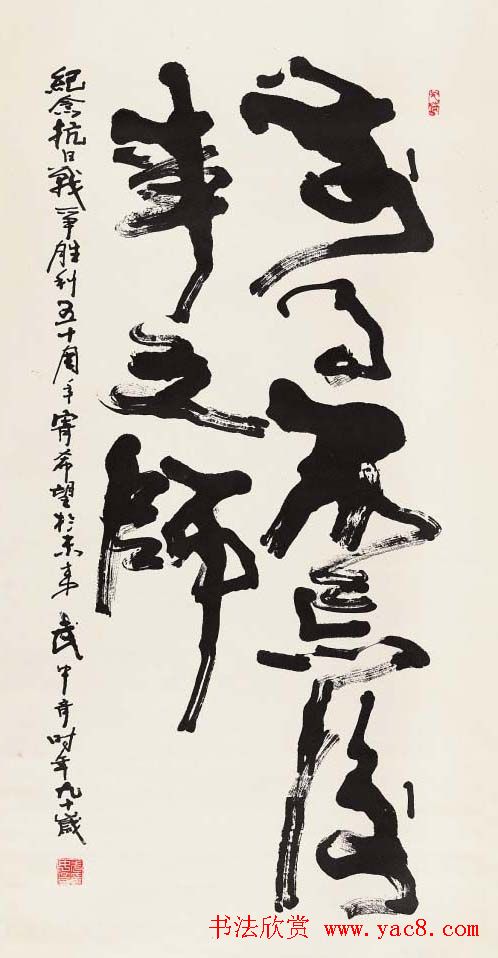 前事不忘後
事之師
紀念抗日戰爭胜利五十周年寄希望於未来 武中奇时年九十歲
书法欣赏 www.yac8.com